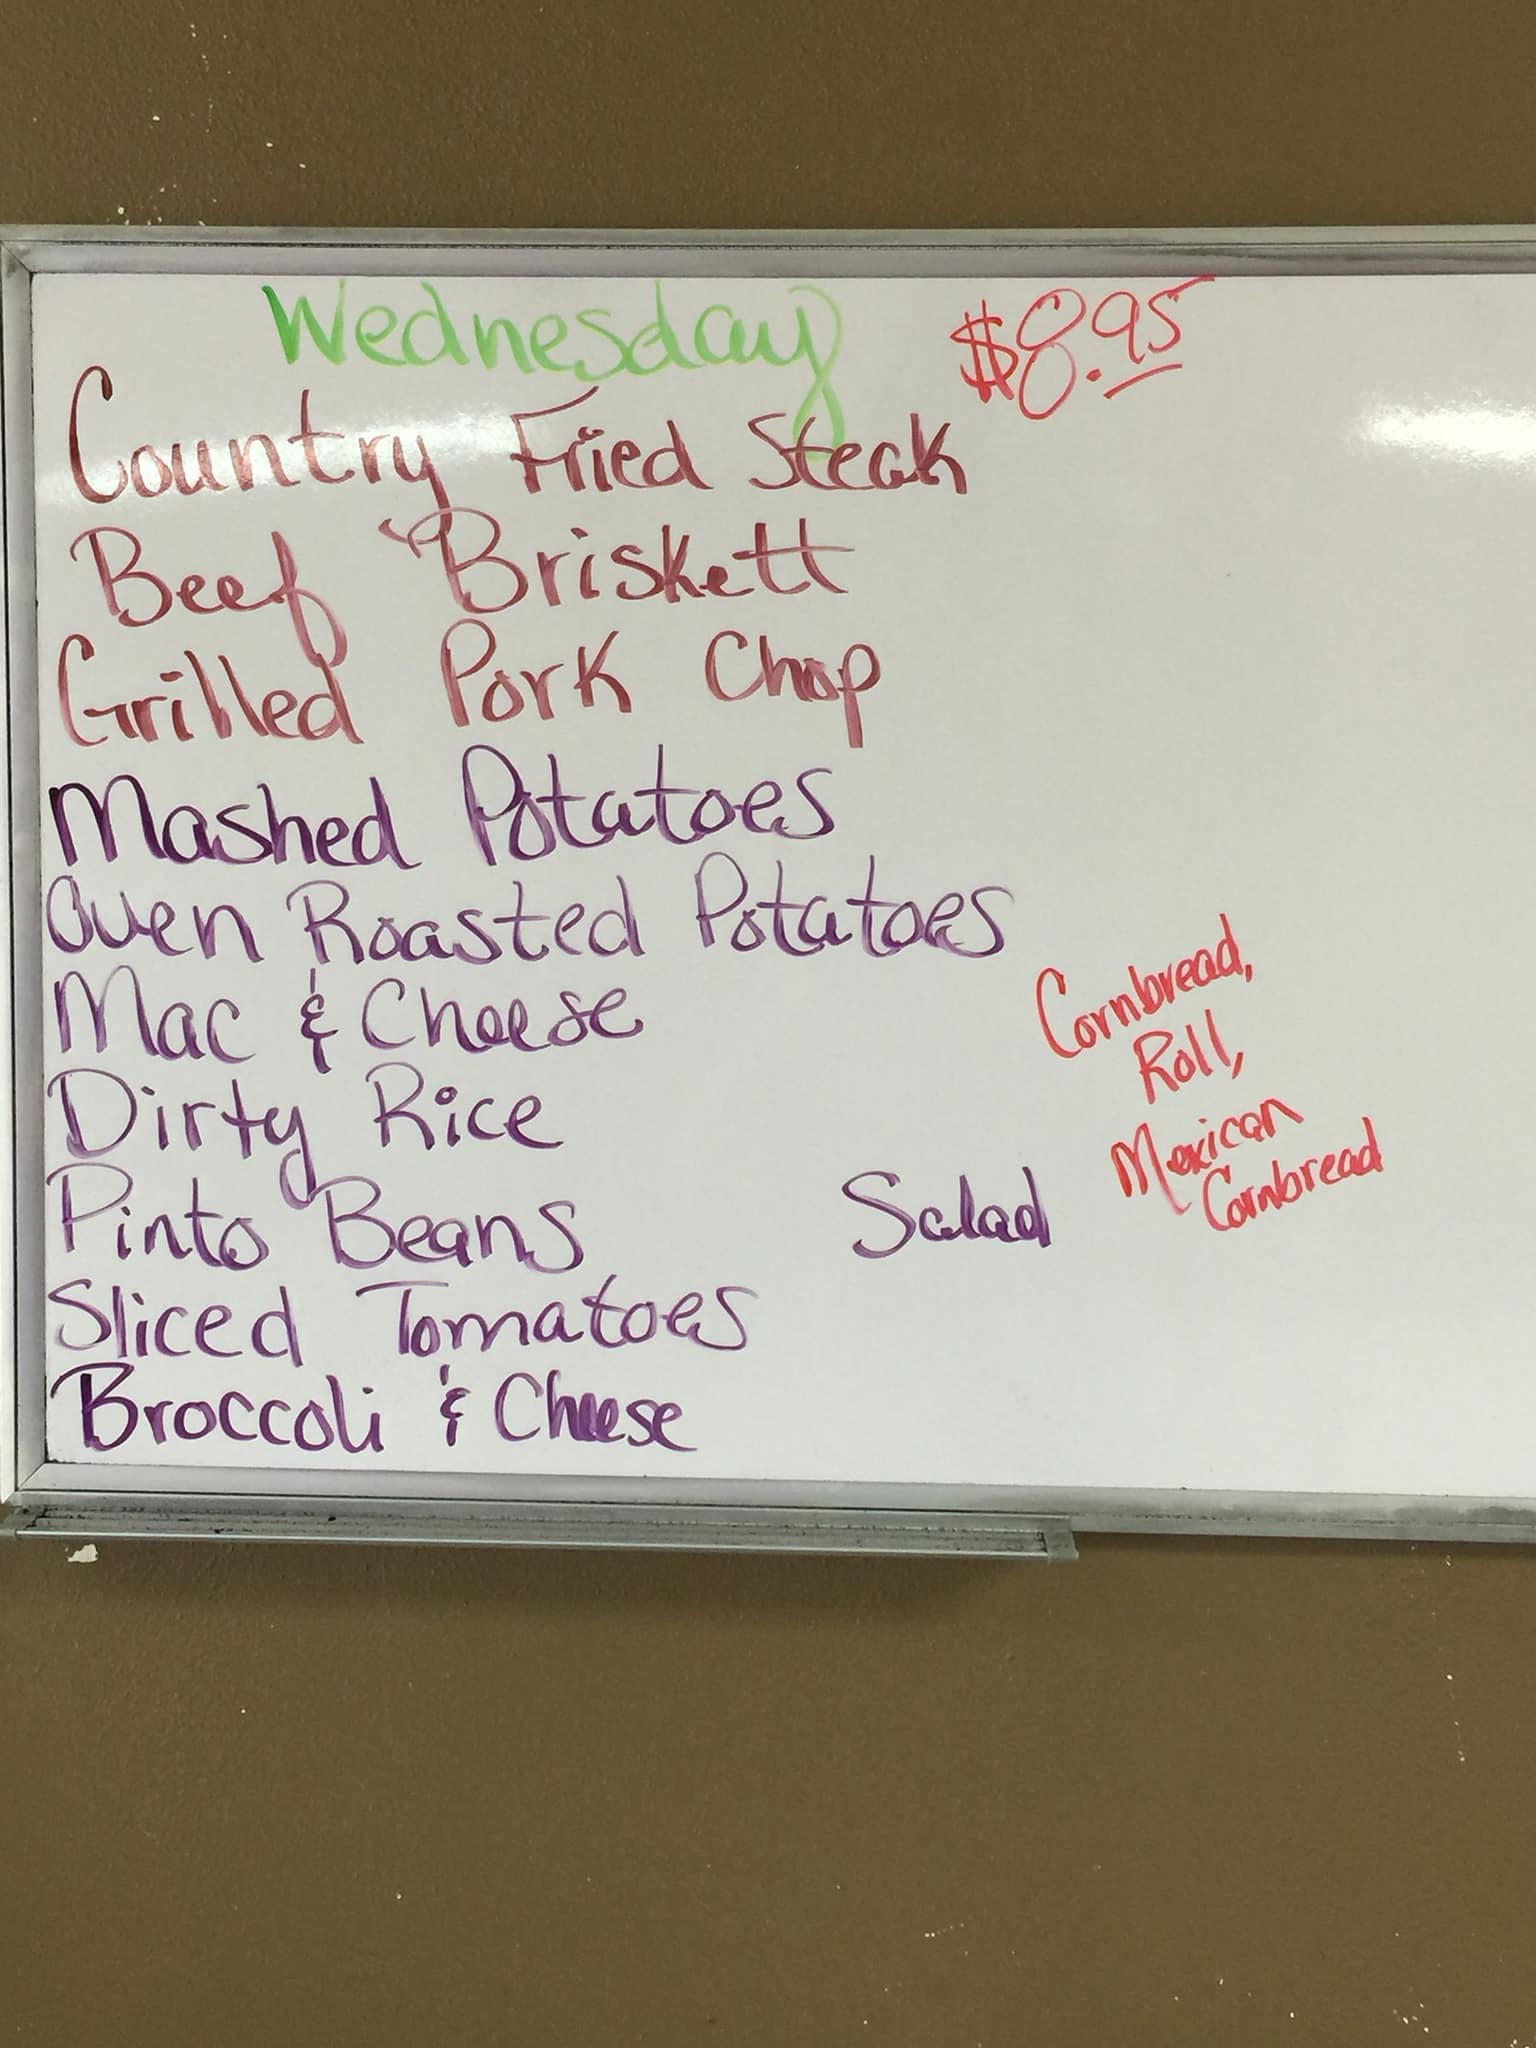 Wednesday $8.95
Country Fried Steak
Beef Briskett
Grilled Pork Chop
Mashed Potatoes
Oven Roasted Potatoes
Mac & Cheese
Dirty Rice
Pinto Beans
Sliced Tomatoes
Broccoli & Cheese
Salad
Cornbread,
Roll,
Mexican
Cornbread